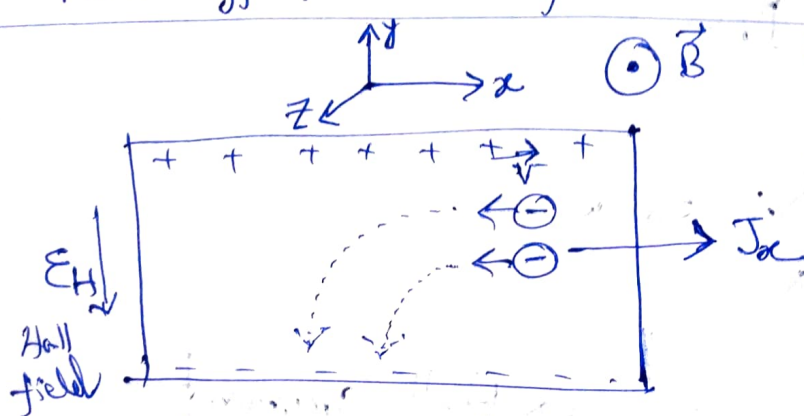 y
x
Z
B⃗
+ + + + + + +
v
⊖
⊖
J_x
Ɛ_H
Hall
field
− − − − − − −